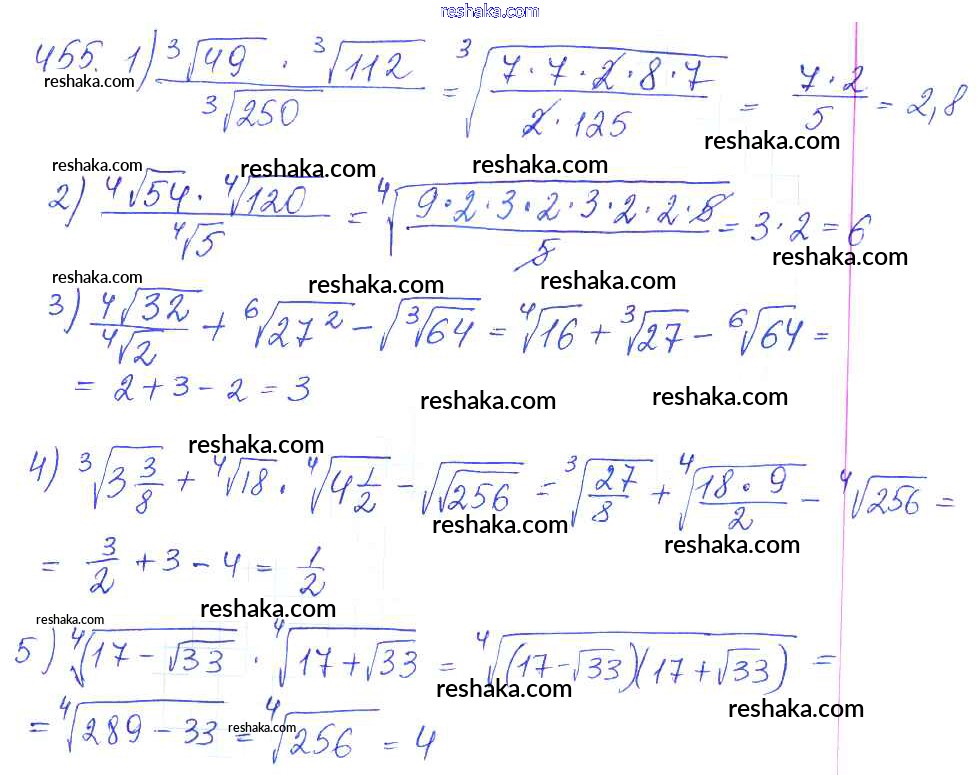 reshaka.com
455. 1) ∛49 · ∛112 / ∛250 = ∛(7·7·2·8·7 / 2·125) = 7·2/5 = 2,8
reshaka.com
reshaka.com
reshaka.com reshaka.com reshaka.com
2) ∜54 · ∜120 / ∜5 = ∜(9·2·3·2·3·2·2·5 / 5) = 3·2 = 6
reshaka.com
reshaka.com reshaka.com reshaka.com
3) ∜32 / ∜2 + ⁶√27² − √∛64 = ∜16 + ∛27 − ⁶√64 =
= 2 + 3 − 2 = 3
reshaka.com reshaka.com
reshaka.com
4) ∛(3 3/8) + ∜18 · ∜(4 1/2) − √√256 = ∛(27/8) + ∜(18·9 / 2) − ∜256 =
reshaka.com reshaka.com
= 3/2 + 3 − 4 = 1/2
reshaka.com
reshaka.com
5) ∜(17 − √33) · ∜(17 + √33) = ∜((17 − √33)(17 + √33)) =
reshaka.com reshaka.com
= ∜(289 − 33) = ∜256 = 4
reshaka.com